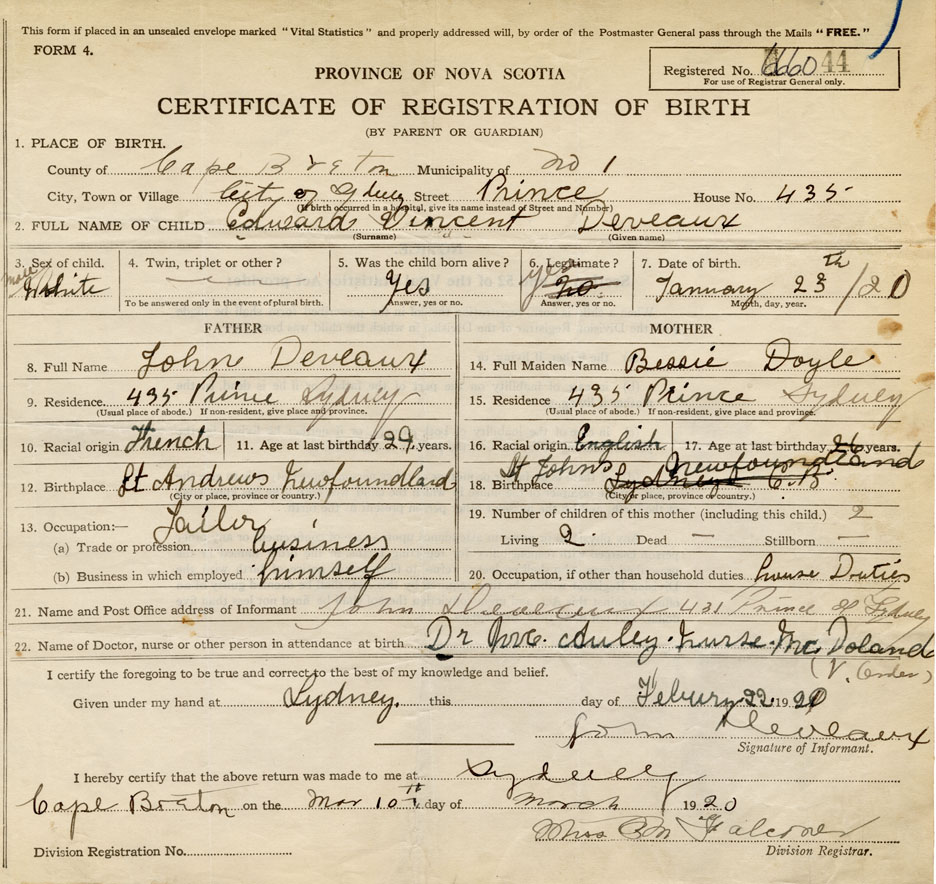 This form if placed in an unsealed envelope marked "Vital Statistics" and properly addressed will, by order of the Postmaster General pass through the Mails "FREE."
FORM 4.
Registered No. 66044
For use of Registrar General only.
PROVINCE OF NOVA SCOTIA
CERTIFICATE OF REGISTRATION OF BIRTH
(BY PARENT OR GUARDIAN)
1. PLACE OF BIRTH.
County of Cape Breton Municipality of No 1
City, Town or Village City of Sydney Street Prince House No. 435
(If birth occurred in a hospital, give its name instead of Street and Number)
2. FULL NAME OF CHILD Edward Vincent Deveaux
(Surname) (Given name)
3. Sex of child. male White
4. Twin, triplet or other? —
To be answered only in the event of plural birth.
5. Was the child born alive? Yes
Answer, yes or no.
6. Legitimate? yes no.
Answer, yes or no.
7. Date of birth. January 23th /20
Month, day, year.
FATHER
8. Full Name John Deveaux
9. Residence. 435 Prince Sydney
(Usual place of abode.) If non-resident, give place and province.
10. Racial origin French 11. Age at last birthday 29 years.
12. Birthplace St Andrews Newfoundland
(City or place, province or country.)
13. Occupation:— Tailor
(a) Trade or profession business
(b) Business in which employed himself
MOTHER
14. Full Maiden Name Bessie Doyle
15. Residence 435 Prince Sydney
(Usual place of abode.) If non-resident, give place and province.
16. Racial origin English 17. Age at last birthday 26 years.
St Johns Newfoundland
18. Birthplace Sydney C.B.
(City or place, province or country.)
19. Number of children of this mother (including this child.) 2
Living 2. Dead — Stillborn —
20. Occupation, if other than household duties house Duties
21. Name and Post Office address of Informant John Deveaux 431 Prince St Sydney
22. Name of Doctor, nurse or other person in attendance at birth Dr Mc Auley. Nurse. Mc Doland
(V. Order)
I certify the foregoing to be true and correct to the best of my knowledge and belief.
Given under my hand at Sydney. this day of Febury 22 1920
John Deveaux
Signature of Informant.
I hereby certify that the above return was made to me at Sydney
Cape Breton on the Mar 10th day of March 1920
Miss Falconer
Division Registration No.
Division Registrar.